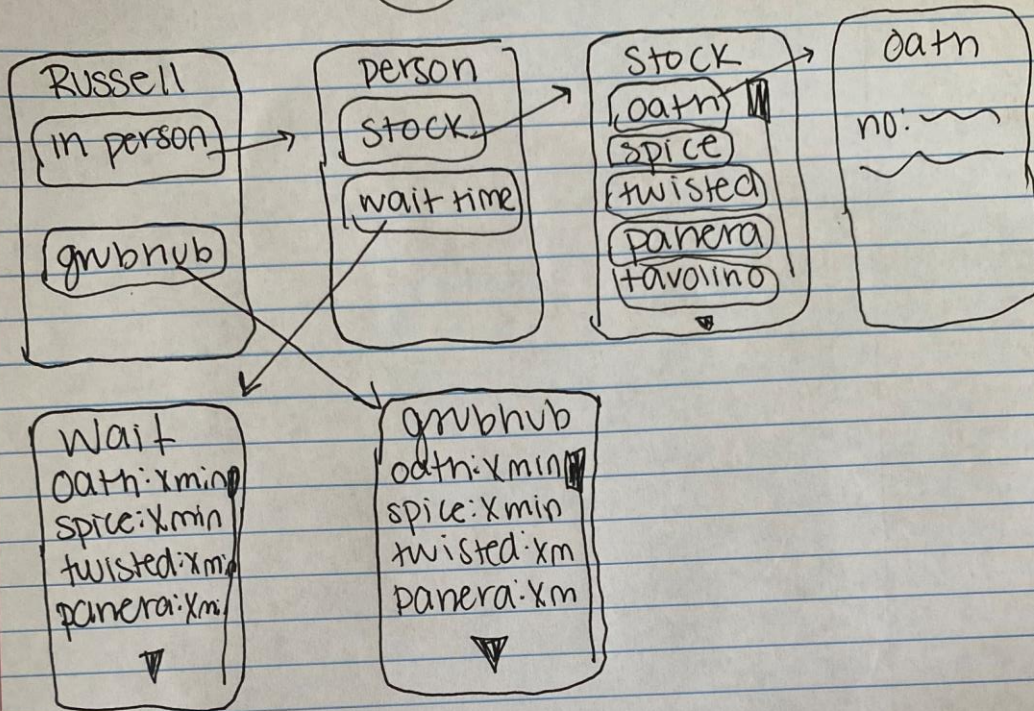 Russell
in person
grubhub
person
stock
wait time
stock
oath
spice
twisted
panera
tavolino
oath
no:
wait
oath: x min
spice: x min
twisted: x mi
panera: x mi
grubhub
oath: x min
spice: x min
twisted: x m
panera: x m